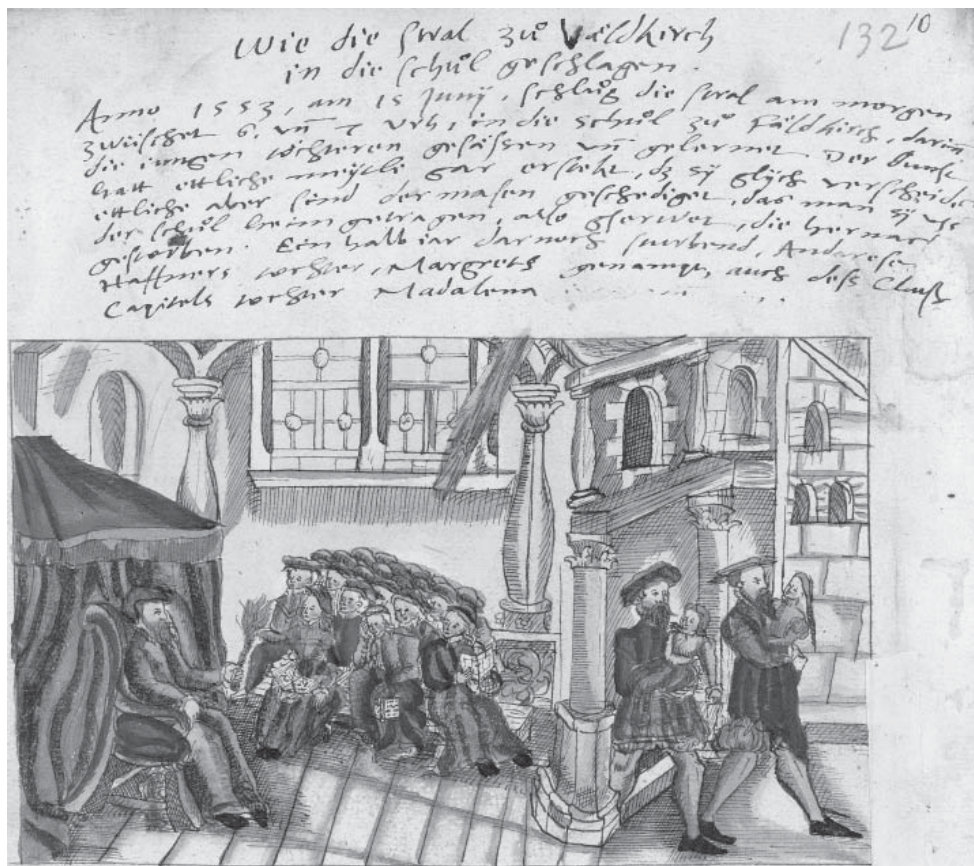 132 10
Wie die stral zů Väldkirch
in die schůl geschlagen.
Anno 1553, am 15 Junij, schlůg die stral am morgen
zwüschet 6. vn̄ 7 vrh, in die schůl zů Fäldkirch, darin
die iungen töchteren gesässen vn̄ gelernet. Der Dunst
hatt ettliche meytli gar erstekt, dz sy glych verscheidē
ettliche aber sind dermasen geschediget, das man sy vss
der schůl heim getragen, also gserwet, die hernach
gestorben. Ein halb iar darnach sturbend, Andresen
Haffners tochter, Margreth genampt, auch dess Cluss
Capitels tochter Madalena